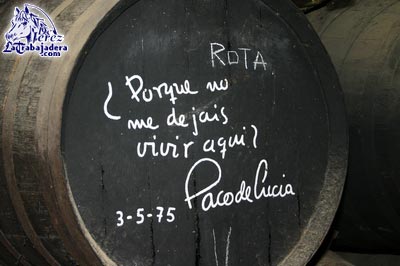 Jerez
LaTrabajadera
.com
ROTA
¿Porque no
me dejais
vivir aqui?
Paco de Lucia
3-5-75